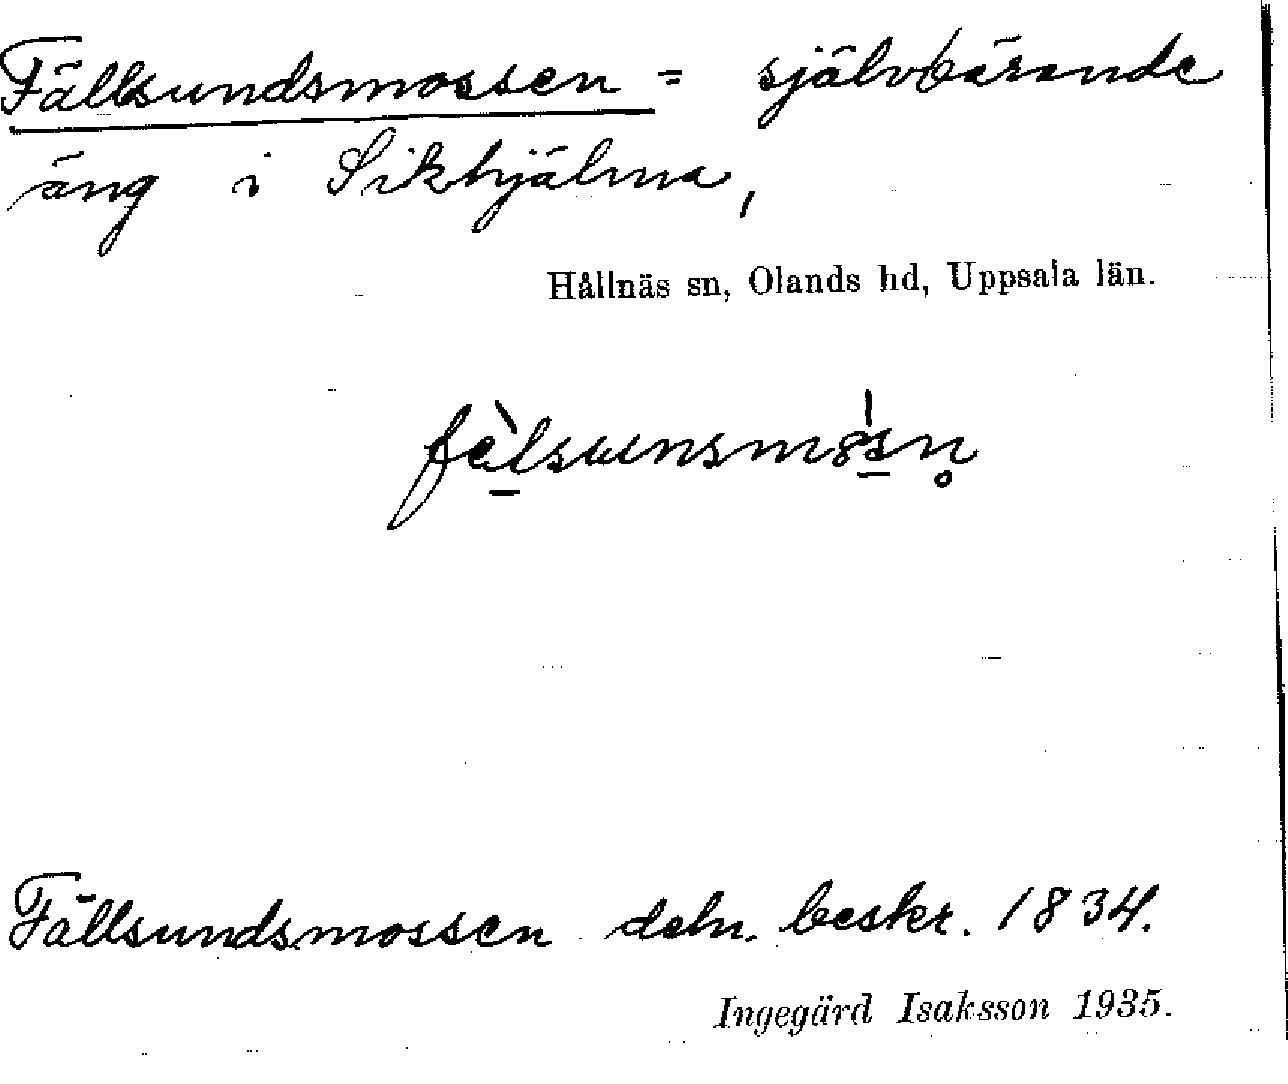 Fällsundsmossen = självbärande
äng i Sikhjälma,
Hållnäs sn, Olands hd, Uppsala län.
fàlsunsmósn̥
Fällsundsmossen deln. beskr. 1834.
Ingegärd Isaksson 1935.